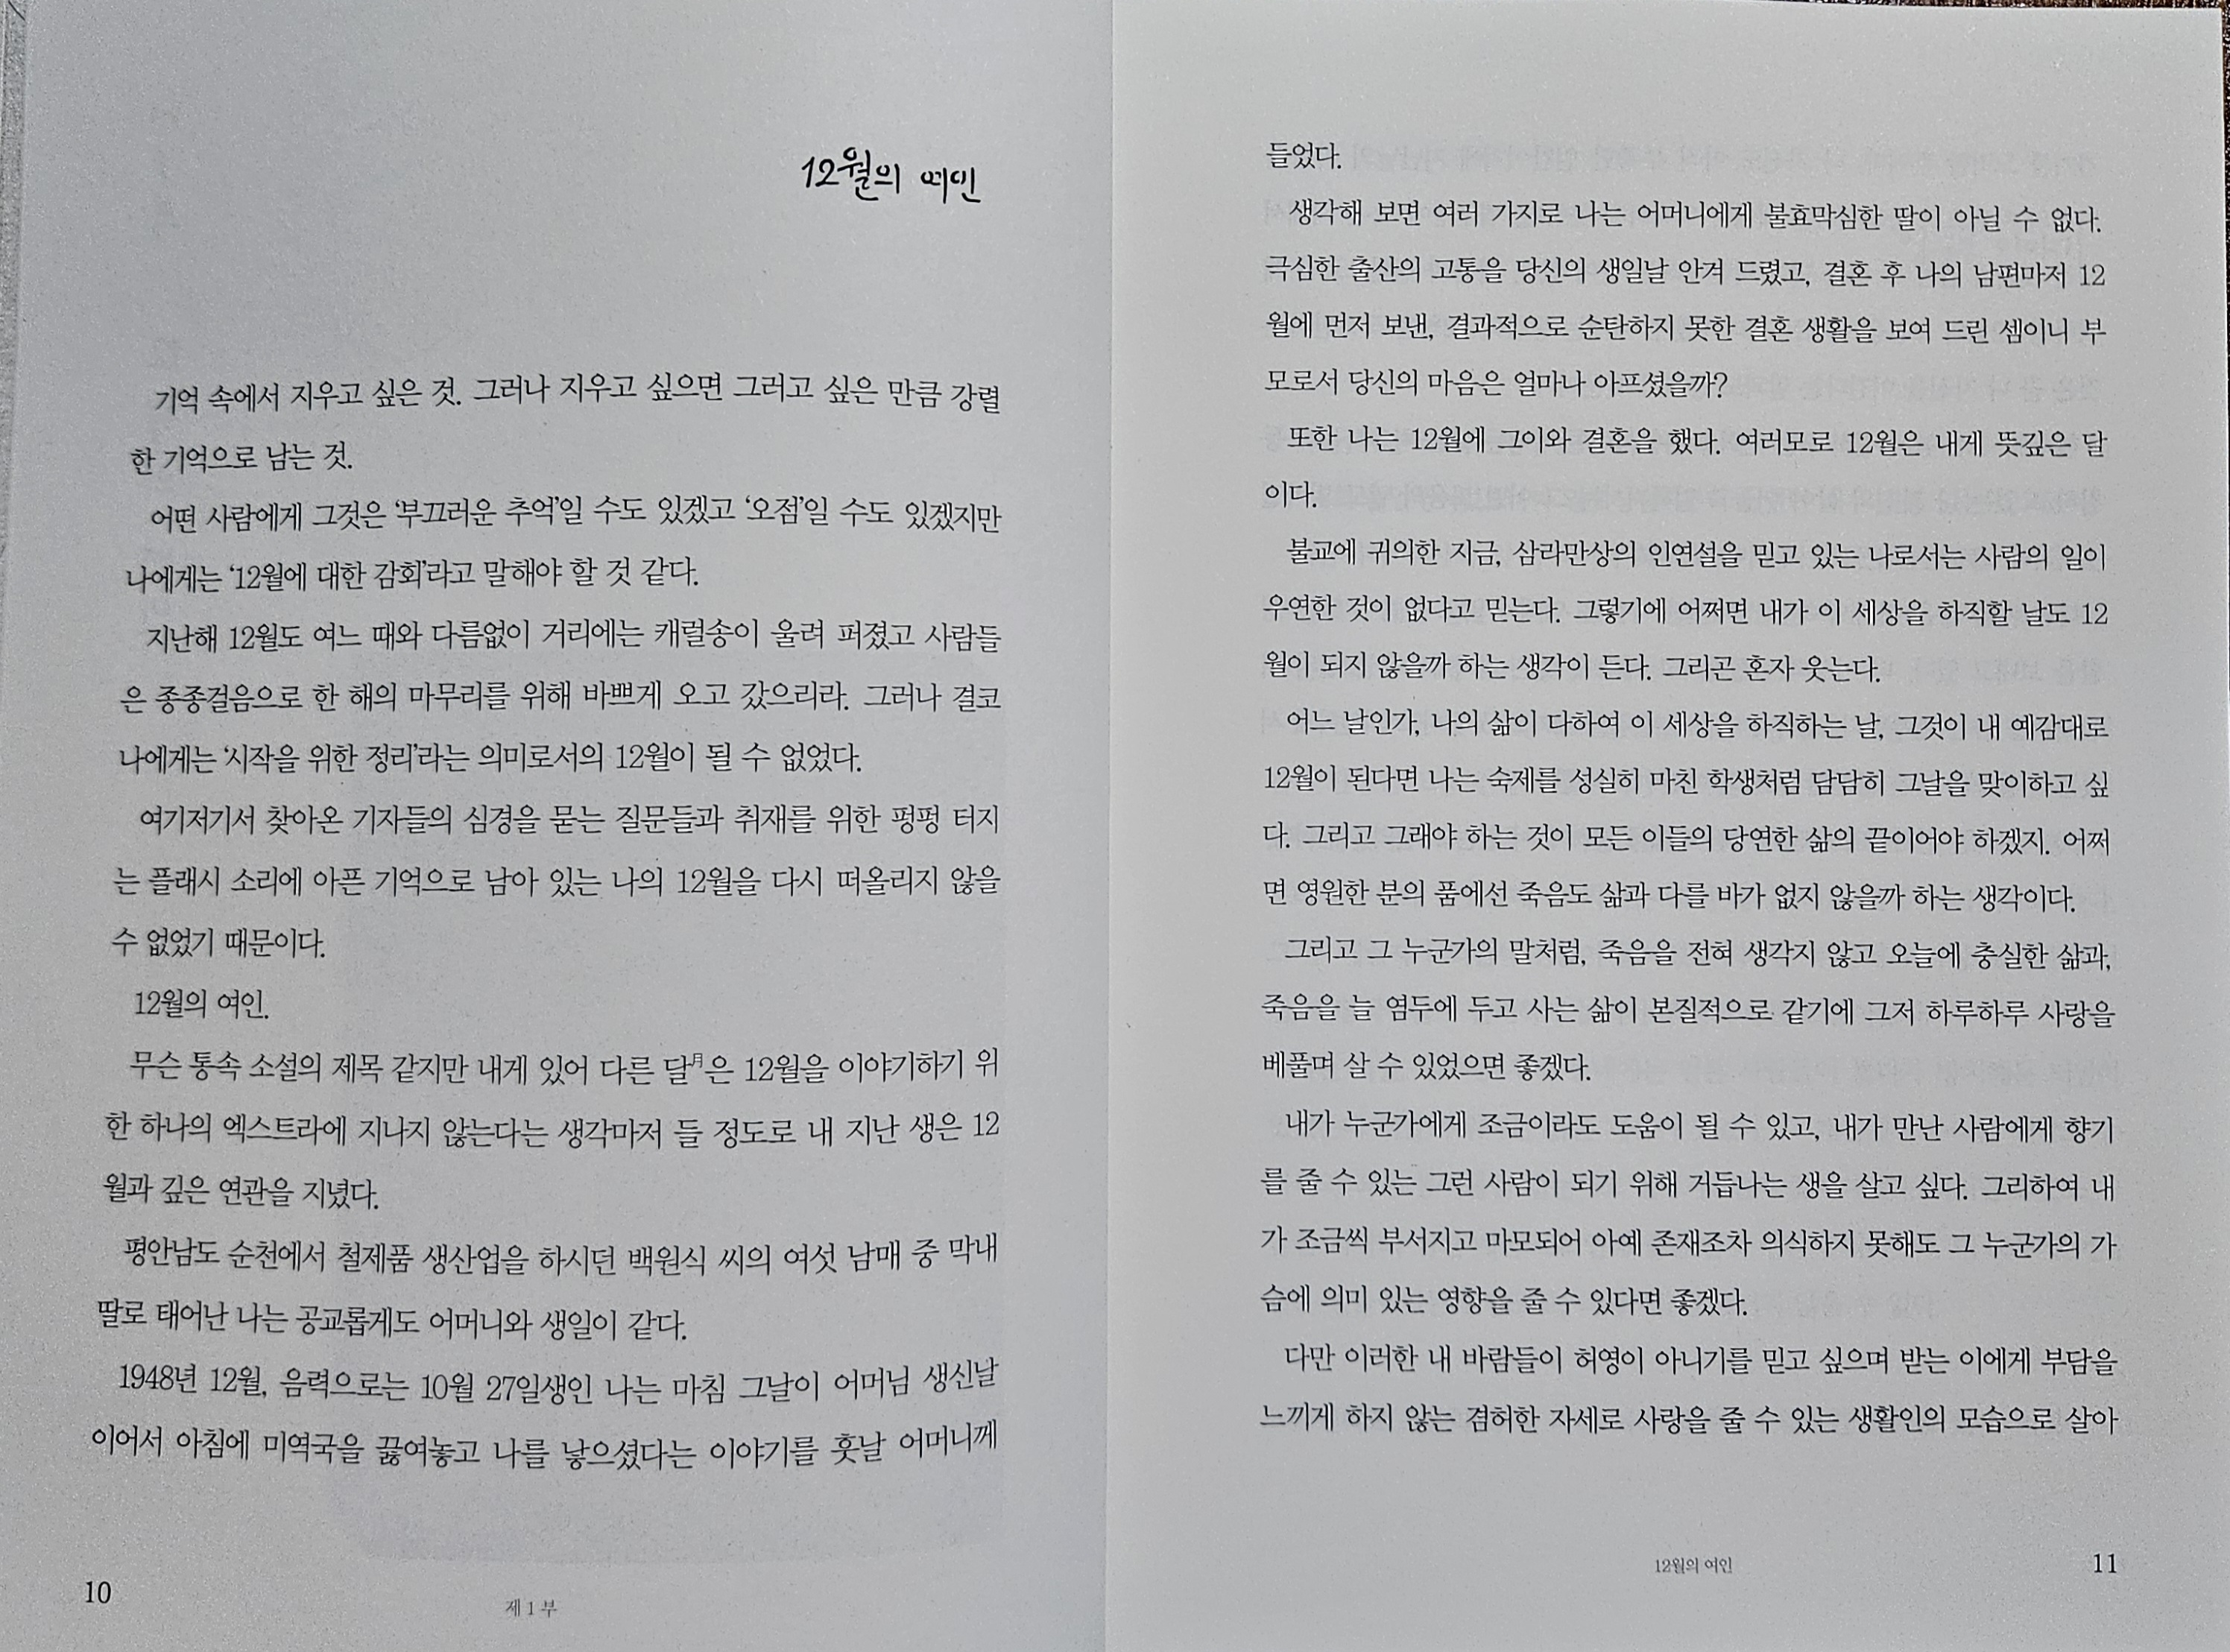 12월의 여인
기억 속에서 지우고 싶은 것. 그러나 지우고 싶으면 그러고 싶은 만큼 강렬
한 기억으로 남는 것.
어떤 사람에게 그것은 ‘부끄러운 추억’일 수도 있겠고 ‘오점’일 수도 있겠지만
나에게는 ‘12월에 대한 감회’라고 말해야 할 것 같다.
지난해 12월도 여느 때와 다름없이 거리에는 캐럴송이 울려 퍼졌고 사람들
은 종종걸음으로 한 해의 마무리를 위해 바쁘게 오고 갔으리라. 그러나 결코
나에게는 ‘시작을 위한 정리’라는 의미로서의 12월이 될 수 없었다.
여기저기서 찾아온 기자들의 심경을 묻는 질문들과 취재를 위한 펑펑 터지
는 플래시 소리에 아픈 기억으로 남아 있는 나의 12월을 다시 떠올리지 않을
수 없었기 때문이다.
12월의 여인.
무슨 통속 소설의 제목 같지만 내게 있어 다른 달月은 12월을 이야기하기 위
한 하나의 엑스트라에 지나지 않는다는 생각마저 들 정도로 내 지난 생은 12
월과 깊은 연관을 지녔다.
평안남도 순천에서 철제품 생산업을 하시던 백원식 씨의 여섯 남매 중 막내
딸로 태어난 나는 공교롭게도 어머니와 생일이 같다.
1948년 12월, 음력으로는 10월 27일생인 나는 마침 그날이 어머님 생신날
이어서 아침에 미역국을 끓여놓고 나를 낳으셨다는 이야기를 훗날 어머니께
10
제 1 부
들었다.
생각해 보면 여러 가지로 나는 어머니에게 불효막심한 딸이 아닐 수 없다.
극심한 출산의 고통을 당신의 생일날 안겨 드렸고, 결혼 후 나의 남편마저 12
월에 먼저 보낸, 결과적으로 순탄하지 못한 결혼 생활을 보여 드린 셈이니 부
모로서 당신의 마음은 얼마나 아프셨을까?
또한 나는 12월에 그이와 결혼을 했다. 여러모로 12월은 내게 뜻깊은 달
이다.
불교에 귀의한 지금, 삼라만상의 인연설을 믿고 있는 나로서는 사람의 일이
우연한 것이 없다고 믿는다. 그렇기에 어쩌면 내가 이 세상을 하직할 날도 12
월이 되지 않을까 하는 생각이 든다. 그리곤 혼자 웃는다.
어느 날인가, 나의 삶이 다하여 이 세상을 하직하는 날, 그것이 내 예감대로
12월이 된다면 나는 숙제를 성실히 마친 학생처럼 담담히 그날을 맞이하고 싶
다. 그리고 그래야 하는 것이 모든 이들의 당연한 삶의 끝이어야 하겠지. 어쩌
면 영원한 분의 품에선 죽음도 삶과 다를 바가 없지 않을까 하는 생각이다.
그리고 그 누군가의 말처럼, 죽음을 전혀 생각지 않고 오늘에 충실한 삶과,
죽음을 늘 염두에 두고 사는 삶이 본질적으로 같기에 그저 하루하루 사랑을
베풀며 살 수 있었으면 좋겠다.
내가 누군가에게 조금이라도 도움이 될 수 있고, 내가 만난 사람에게 향기
를 줄 수 있는 그런 사람이 되기 위해 거듭나는 생을 살고 싶다. 그리하여 내
가 조금씩 부서지고 마모되어 아예 존재조차 의식하지 못해도 그 누군가의 가
슴에 의미 있는 영향을 줄 수 있다면 좋겠다.
다만 이러한 내 바람들이 허영이 아니기를 믿고 싶으며 받는 이에게 부담을
느끼게 하지 않는 겸허한 자세로 사랑을 줄 수 있는 생활인의 모습으로 살아
12월의 여인
11